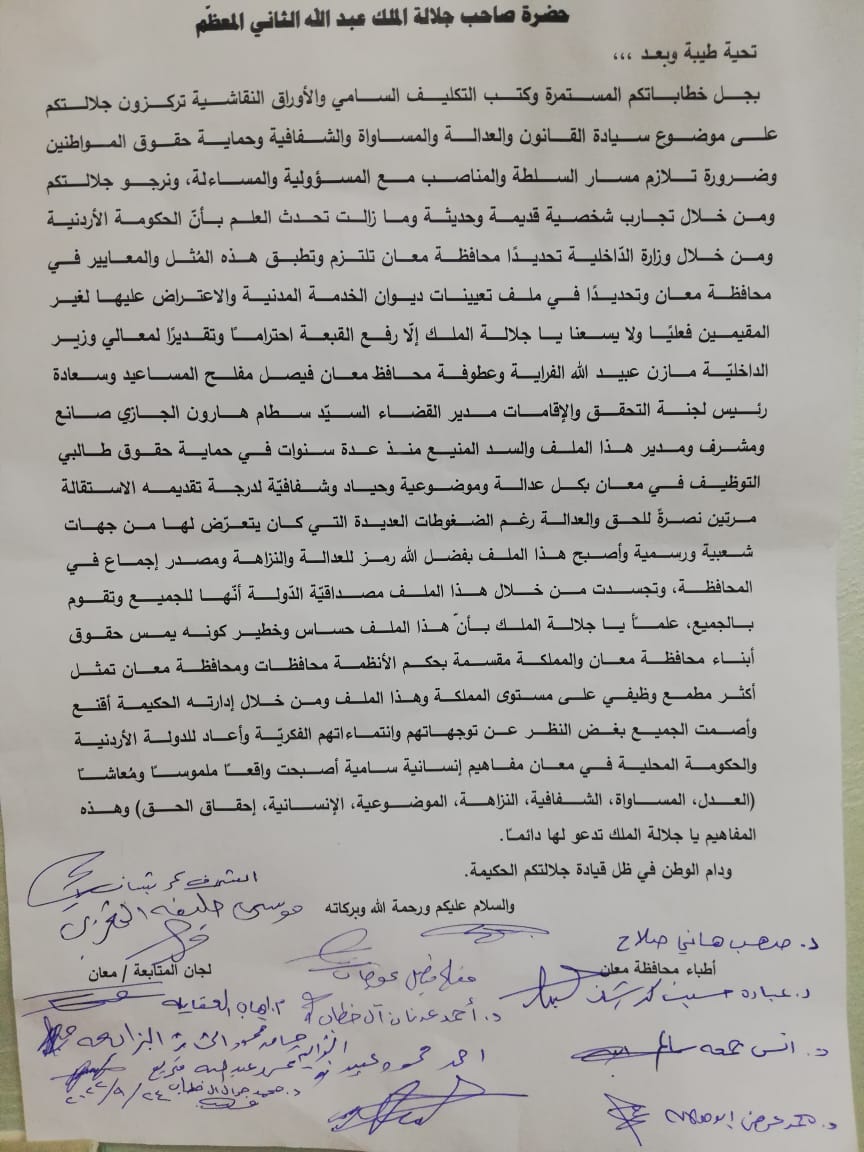 حضرة صاحب جلالة الملك عبد الله الثاني المعظّم
تحية طيبة وبعد ،،،
بجل خطاباتكم المستمرة وكتب التكليف السامي والأوراق النقاشية تركزون جلالتكم
على موضوع سيادة القانون والعدالة والمساواة والشفافية وحماية حقوق المواطنين
وضرورة تلازم مسار السلطة والمناصب مع المسؤولية والمساءلة، ونرجو جلالتكم
ومن خلال تجارب شخصية قديمة وحديثة وما زالت تحدث العلم بأنّ الحكومة الأردنية
ومن خلال وزارة الدّاخلية تحديدًا محافظة معان تلتزم وتطبق هذه المُثل والمعايير في
محافظة معان وتحديدًا في ملف تعيينات ديوان الخدمة المدنية والاعتراض عليها لغير
المقيمين فعليًا ولا يسعنا يا جلالة الملك إلّا رفع القبعة احترامًا وتقديرًا لمعالي وزير
الداخليّة مازن عبيد الله الفراية وعطوفة محافظ معان فيصل مفلح المساعيد وسعادة
رئيس لجنة التحقق والإقامات مدير القضاء السيّد سطام هارون الجازي صانع
ومشرف ومدير هذا الملف والسد المنيع منذ عدة سنوات في حماية حقوق طالبي
التوظيف في معان بكل عدالة وموضوعية وحياد وشفافيّة لدرجة تقديمه الاستقالة
مرتين نصرةً للحق والعدالة رغم الضغوطات العديدة التي كان يتعرّض لها من جهات
شعبية ورسمية وأصبح هذا الملف بفضل الله رمز للعدالة والنزاهة ومصدر إجماع في
المحافظة، وتجسدت من خلال هذا الملف مصداقيّة الدّولة أنّها للجميع وتقوم
بالجميع، علمًا يا جلالة الملك بأنّ هذا الملف حساس وخطير كونه يمس حقوق
أبناء محافظة معان والمملكة مقسمة بحكم الأنظمة محافظات ومحافظة معان تمثل
أكثر مطمع وظيفي على مستوى المملكة وهذا الملف ومن خلال إدارته الحكيمة أقنع
وأصمت الجميع بغض النظر عن توجهاتهم وانتماءاتهم الفكريّة وأعاد للدولة الأردنية
والحكومة المحلية في معان مفاهيم إنسانية سامية أصبحت واقعًا ملموسًا ومُعاشًا
(العدل، المساواة، الشفافية، النزاهة، الموضوعية، الإنسانية، إحقاق الحق) وهذه
المفاهيم يا جلالة الملك تدعو لها دائمًا.
ودام الوطن في ظل قيادة جلالتكم الحكيمة.
والسلام عليكم ورحمة الله وبركاته
موسى خليفه
د. صهيب هاني صلاح
أطباء محافظة معان
لجان المتابعة / معان
د. عبادة حسين
د. أحمد عدنان آل خطاب
د. انس جمعه
احمد محمود عبيد
د. محمد عوض
د. محمد جمال آل خطاب
٢٠٢٢/٩/٢٤